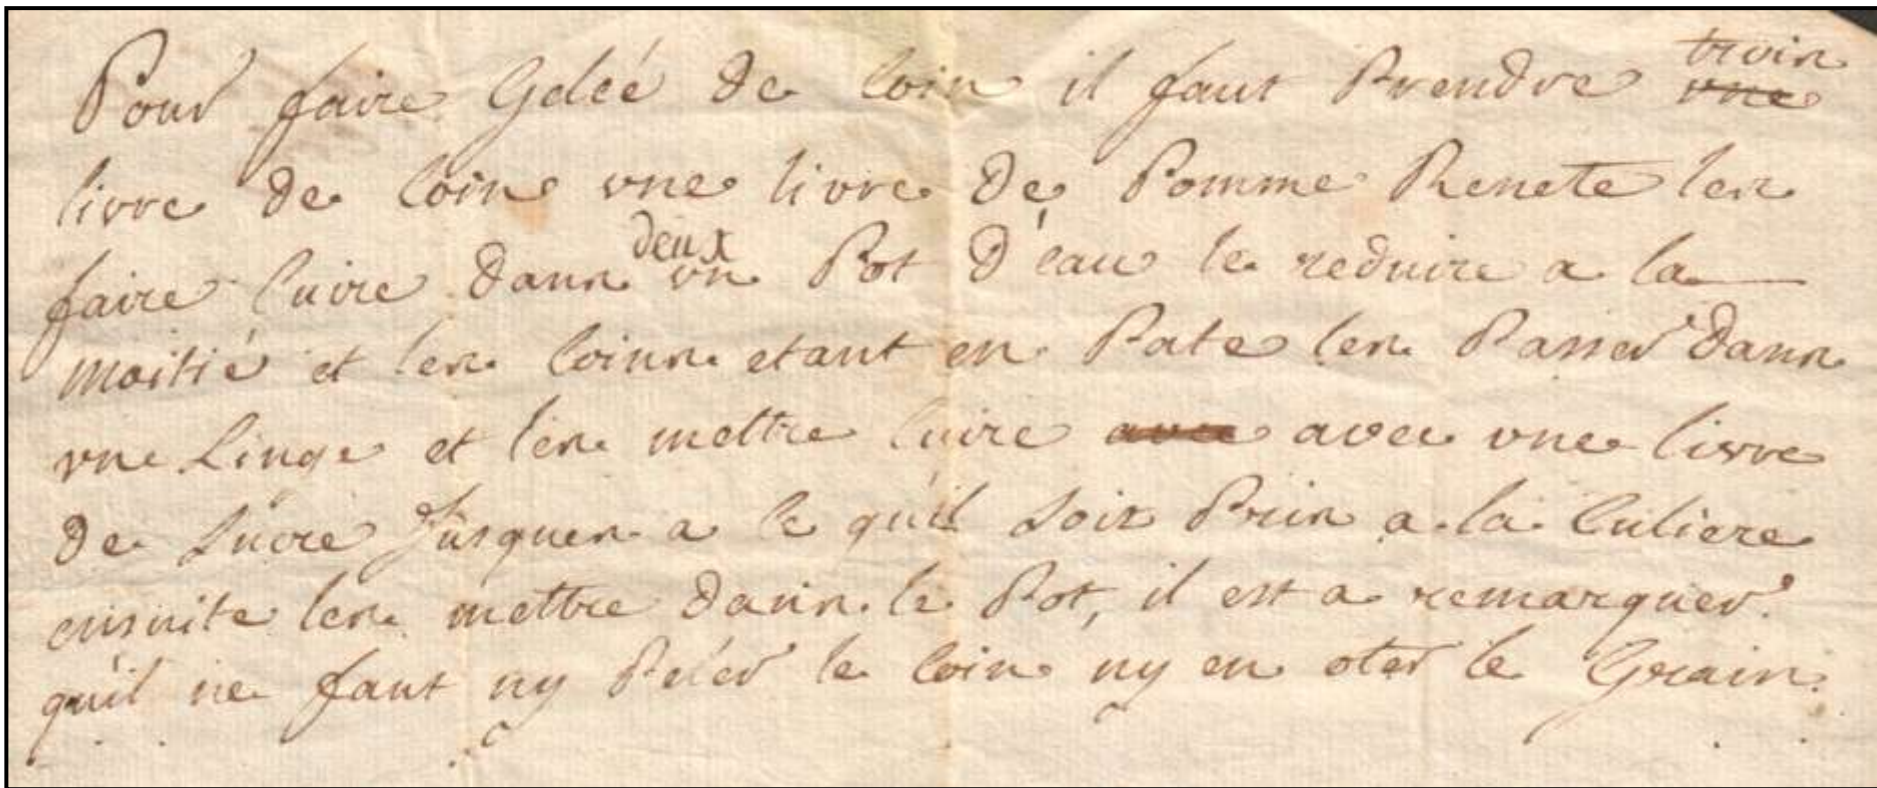 Pour faire Gelée de Coin il faut Prendre trois une
livre de Coin une livre de Pomme Renete les
faire Cuire dans deux un Pot d'eau le reduire a la
moitié et les Coins etant en Pate les Passer dans
une Linge et les mettre Cuire avec avec une livre
de Sucre Jusques a ce quil soit Pris a la Culiere
ensuite les mettre dans le Pot, il est a remarquer
qu'il ne faut ny Peler le Coin ny en oter le Grain.